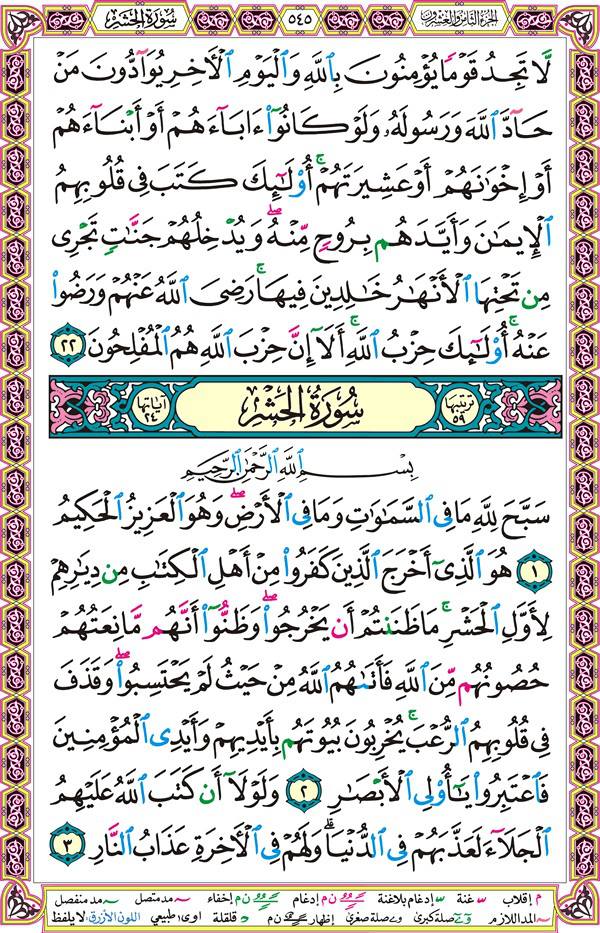 الجزء الثامن والعشرون
٥٤٥
سُورَةُ الحَشْرِ
لَّا تَجِدُ قَوْمًا يُؤْمِنُونَ بِٱللَّهِ وَٱلْيَوْمِ ٱلْأَخِرِ يُوَآدُّونَ مَنْ
حَآدَّ ٱللَّهَ وَرَسُولَهُۥ وَلَوْ كَانُوٓا۟ ءَابَآءَهُمْ أَوْ أَبْنَآءَهُمْ
أَوْ إِخْوَٰنَهُمْ أَوْ عَشِيرَتَهُمْ ۚ أُو۟لَٰٓئِكَ كَتَبَ فِى قُلُوبِهِمُ
ٱلْإِيمَٰنَ وَأَيَّدَهُم بِرُوحٍ مِّنْهُ ۖ وَيُدْخِلُهُمْ جَنَّٰتٍ تَجْرِى
مِن تَحْتِهَا ٱلْأَنْهَٰرُ خَٰلِدِينَ فِيهَا ۚ رَضِىَ ٱللَّهُ عَنْهُمْ وَرَضُوا۟
عَنْهُ ۚ أُو۟لَٰٓئِكَ حِزْبُ ٱللَّهِ ۚ أَلَآ إِنَّ حِزْبَ ٱللَّهِ هُمُ ٱلْمُفْلِحُونَ ٢٢
ترتيبها ٥٩
سُورَةُ الحَشْرِ
آياتها ٢٤
بِسْمِ ٱللَّهِ ٱلرَّحْمَٰنِ ٱلرَّحِيمِ
سَبَّحَ لِلَّهِ مَا فِى ٱلسَّمَٰوَٰتِ وَمَا فِى ٱلْأَرْضِ ۖ وَهُوَ ٱلْعَزِيزُ ٱلْحَكِيمُ
١ هُوَ ٱلَّذِىٓ أَخْرَجَ ٱلَّذِينَ كَفَرُوا۟ مِنْ أَهْلِ ٱلْكِتَٰبِ مِن دِيَٰرِهِمْ
لِأَوَّلِ ٱلْحَشْرِ ۚ مَا ظَنَنتُمْ أَن يَخْرُجُوا۟ ۖ وَظَنُّوٓا۟ أَنَّهُم مَّانِعَتُهُمْ
حُصُونُهُم مِّنَ ٱللَّهِ فَأَتَىٰهُمُ ٱللَّهُ مِنْ حَيْثُ لَمْ يَحْتَسِبُوا۟ ۖ وَقَذَفَ
فِى قُلُوبِهِمُ ٱلرُّعْبَ ۚ يُخْرِبُونَ بُيُوتَهُم بِأَيْدِيهِمْ وَأَيْدِى ٱلْمُؤْمِنِينَ
فَٱعْتَبِرُوا۟ يَٰٓأُو۟لِى ٱلْأَبْصَٰرِ ٢ وَلَوْلَآ أَن كَتَبَ ٱللَّهُ عَلَيْهِمُ
ٱلْجَلَآءَ لَعَذَّبَهُمْ فِى ٱلدُّنْيَا ۖ وَلَهُمْ فِى ٱلْأَخِرَةِ عَذَابُ ٱلنَّارِ ٣
م إقلاب غنة إدغام بلاغنة ن م إدغام ن م إخفاء مد متصل مد منفصل
المد اللازم صلة كبرى صلة صغرى إظهار ن م قلقلة اوى طبيعي اللون الأزرق: لا يلفظ